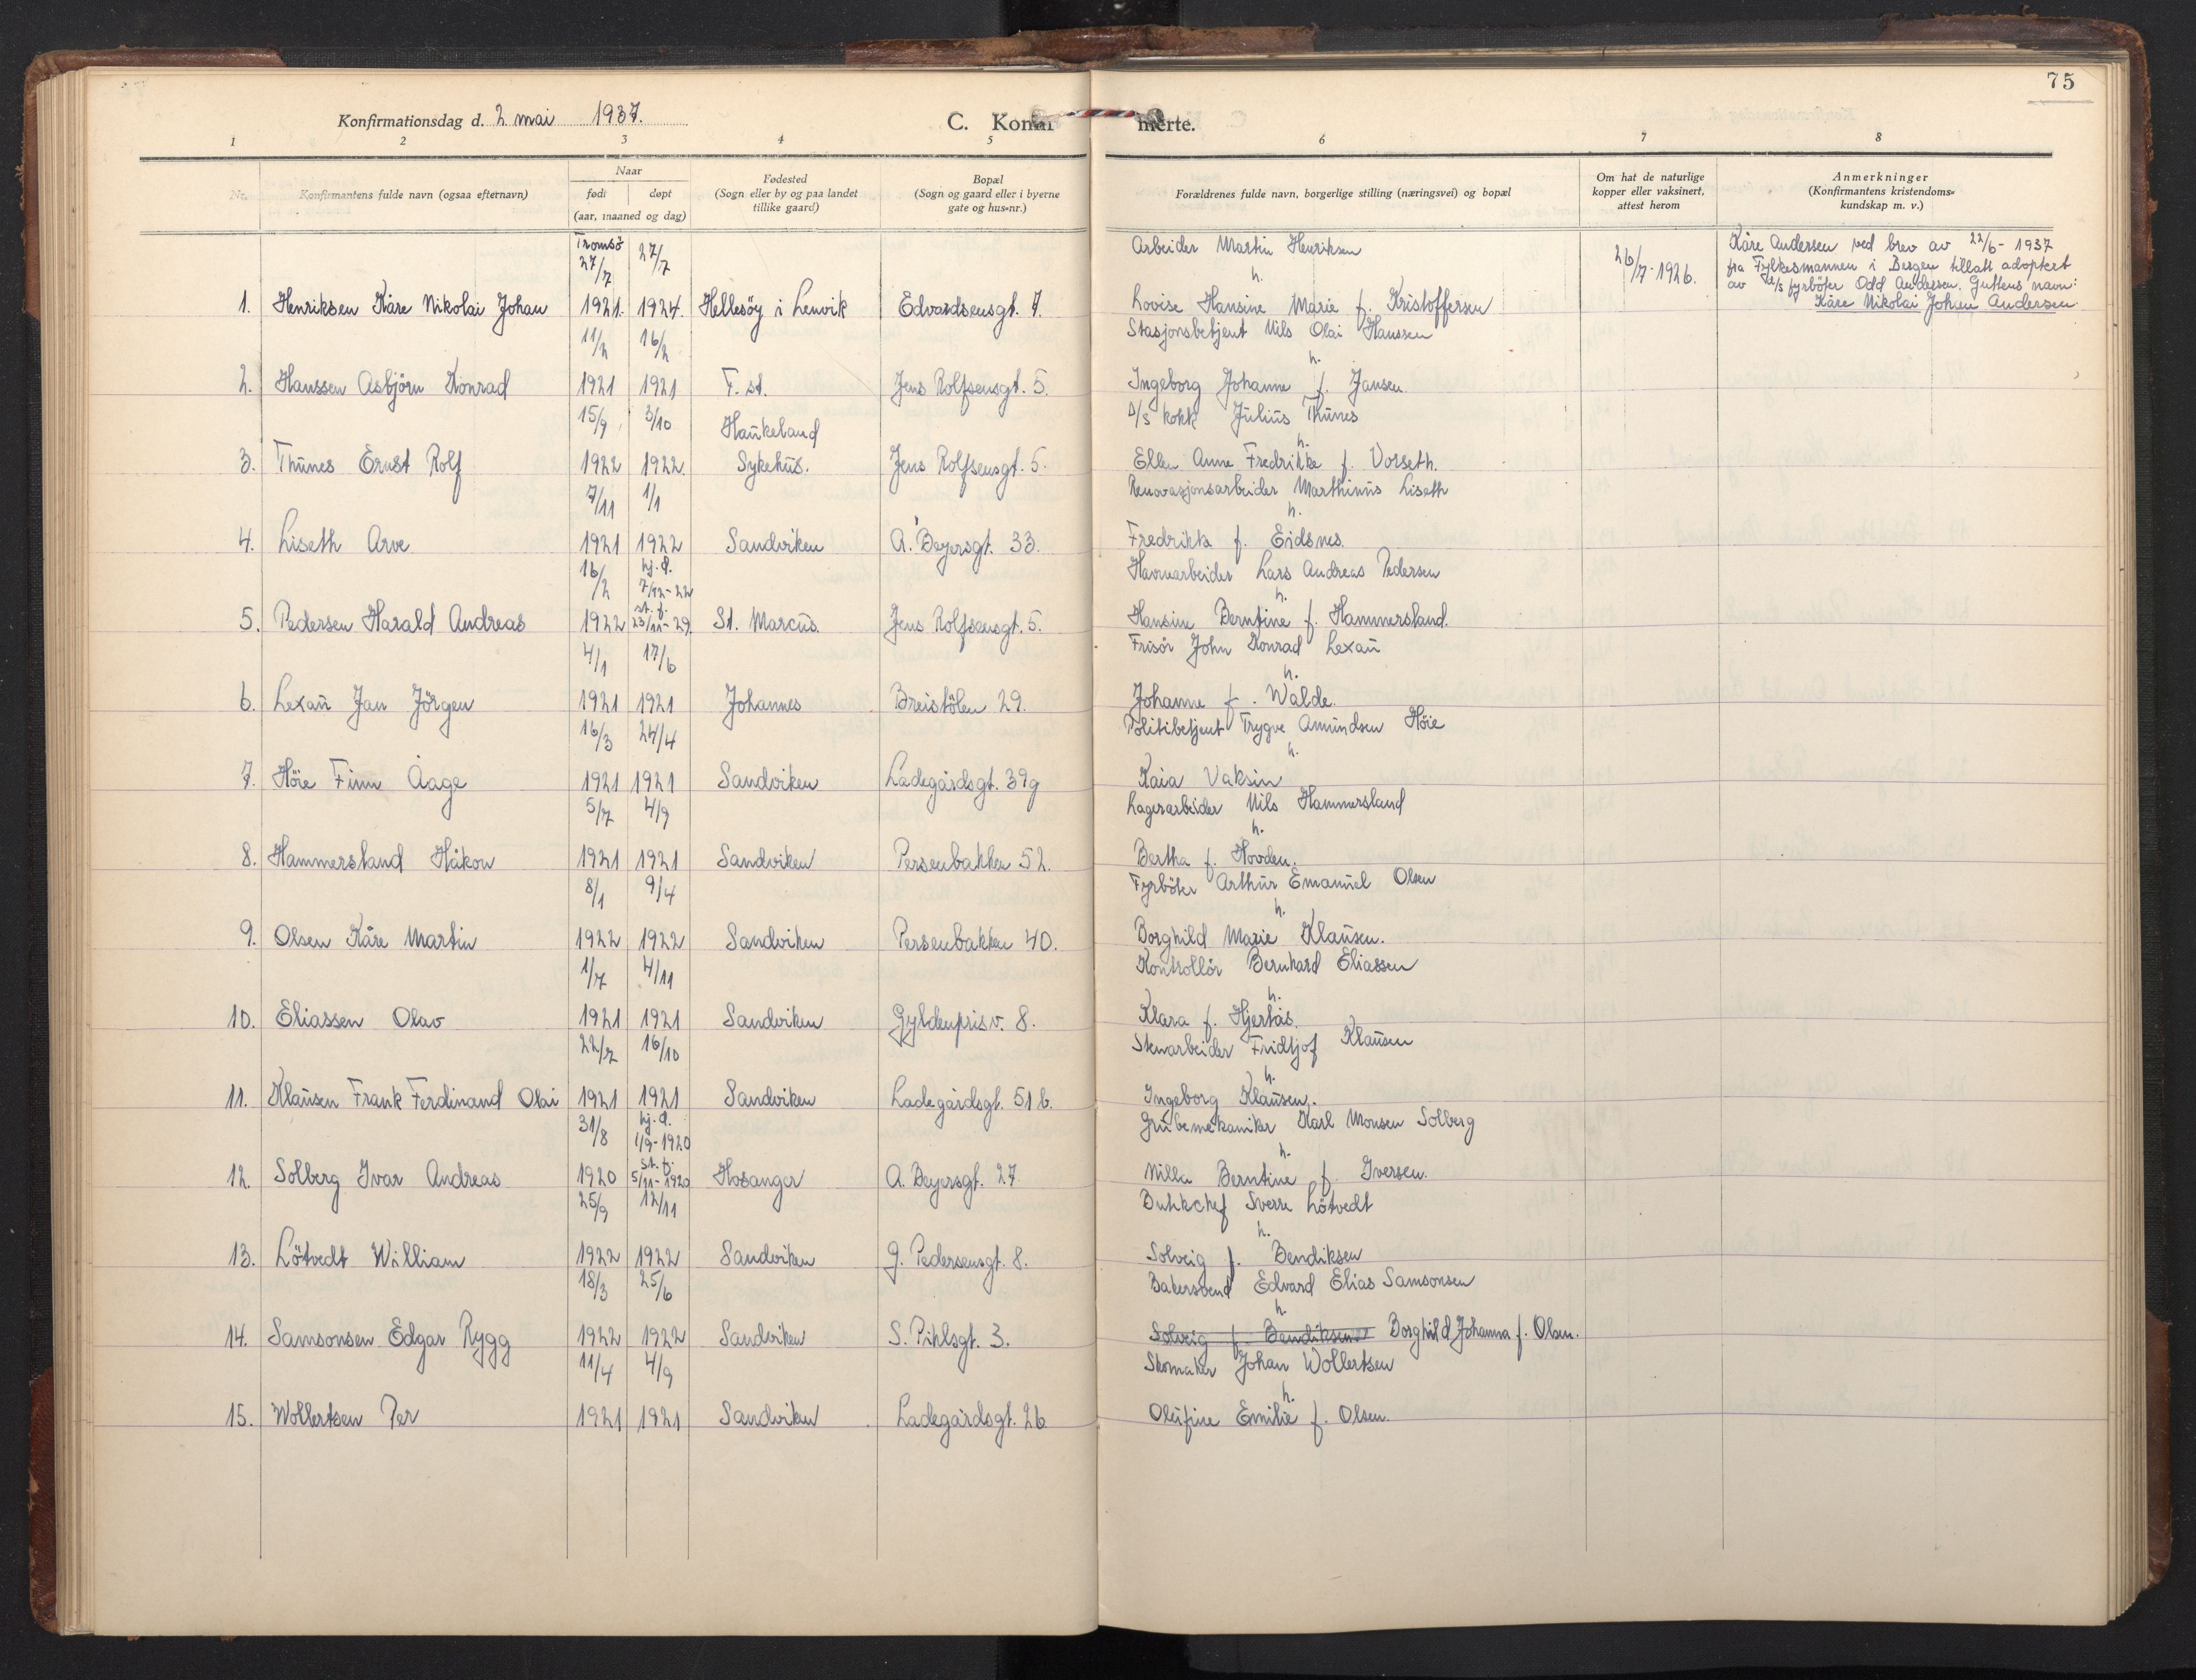 75
Konfirmationsdag d. 2 mai 1937.
C. Konfir
merte.
1 2 3 4 5 6 7 8
Nr. Konfirmantens fulde navn (ogsaa efternavn)
Naar
født døpt
(aar, maaned og dag)
Fødested
(Sogn eller by og paa landet
tillike gaard)
Bopæl
(Sogn og gaard eller i byerne
gate og hus-nr.)
Forældrenes fulde navn, borgerlige stilling (næringsvei) og bopæl
Om hat de naturlige
kopper eller vaksinert,
attest herom
Anmerkninger
(Konfirmantens kristendoms-
kundskap m. v.)
Tromsö
27/7 27/7 Arbeider Martin Henriksen
h.
1. Henriksen Kåre Nikolai Johan 1921. 1924. Hellesöy i Lenvik Edvardsensgt. 7. Lovise Hansine Marie f. Kristoffersen
26/7-1926.
Kåre Andersen ved brev av 22/6-1937
fra Fylkesmannen i Bergen tillatt adoptert
av d/s fyrböter Odd Andersen. Guttens navn:
Kåre Nikolai Johan Andersen.
11/2 16/2 Stasjonsbetjent Nils Olai Hanssen
h.
2. Hanssen Asbjörn Konrad 1921 1921 F. st. Jens Rolfsensgt. 5. Ingeborg Johanne f. Jansen
15/9 3/10 Haukeland D/S kokk Julius Thunes
h.
3. Thunes Ernst Rolf 1922 1922. Sykehus. Jens Rolfsensgt. 5. Ellen Anne Fredrikke f. Vorseth.
7/11 1/1 Renovasjonsarbeider Marthinus Liseth
h.
4. Liseth Arve 1921 1922 Sandviken A. Beyersgt. 33. Fredrikke f. Eidsnes.
16/2 hj. d. Havnearbeider Lars Andreas Pedersen
7/12-22
st. f. h.
5. Pedersen Harald Andreas 1922 23/11-29. St. Marcus. Jens Rolfsensgt. 5. Hansine Berntine f. Hammersland.
4/1 17/6 Frisör John Konrad Lexau
h.
6. Lexau Jan Jörgen 1921 1921 Johannes Breistölen 29. Johanne f. Walde.
16/3 24/4 Politibetjent Trygve Amundsen Höie
h.
7. Höie Finn Aage 1921 1921 Sandviken Ladegårdsgt. 39g Kaia Vaksin
5/7 4/9 Lagerarbeider Nils Hammersland
h.
8. Hammersland Håkon 1921 1921 Sandviken Persenbakken 52. Bertha f. Hovden.
8/1 9/4 Fyrböter Arthur Emanuel Olsen
h.
9. Olsen Kåre Martin 1922 1922 Sandviken Persenbakken 40. Borghild Marie Klausen.
1/7 4/11 Kontrollör Bernhard Eliassen
h.
10. Eliassen Olav 1921 1921 Sandviken Gyldenprisv. 8. Klara f. Hjertås.
22/7 16/10 Stenarbeider Fridtjof Klausen
h.
11. Klausen Frank Ferdinand Olai 1921 1921 Sandviken Ladegårdsgt. 51b. Ingeborg Klausen.
31/8 hj. d. Grubemekaniker Karl Monsen Solberg
1/9-1920
st. f. h.
12. Solberg Ivar Andreas 1920 5/11-1920 Hosanger A. Beyersgt. 27. Milla Berntine f. Iversen.
25/9 12/11 Sverre Lötvedt
h.
13. Lötvedt William 1922 1922 Sandviken G. Pedersensgt. 8. Solveig f. Bendiksen
18/3 25/6 Bakersvend Edvard Elias Samsonsen
h.
14. Samsonsen Edgar Rygg 1922 1922 Sandviken S. Pihlsgt. 3. Solveig f. Bendiksen Borghild Johanna f. Olsen.
11/4 4/9 Skomaker Johan Wollertsen
h.
15. Wollertsen Per 1921 1921 Sandviken Ladegårdsgt. 26 Olufine Emilie f. Olsen.